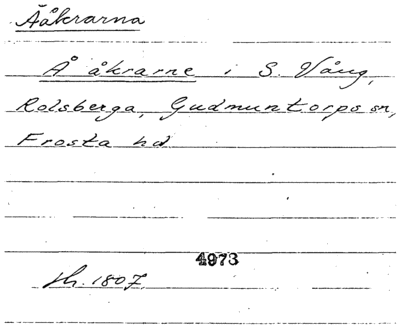 Ååkrarna
Å åkrarne i S. Vång,
Rolsberga, Gudmuntorps sn,
Frosta hd
4973
1807